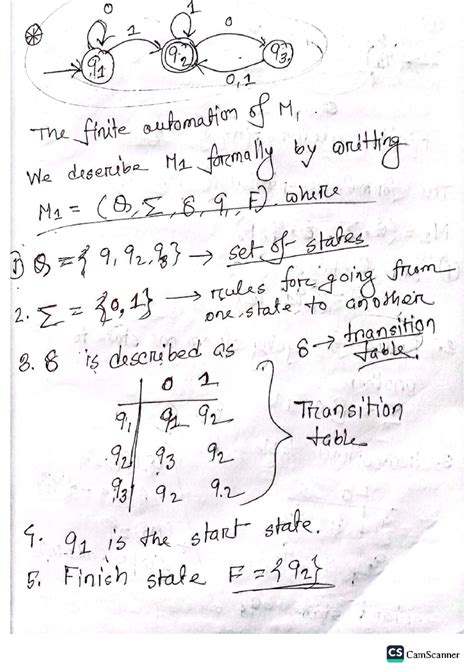 0 1 0
1
q1 q2 q3
0,1
The finite automation of M1.
We describe M1 formally by writting
M1 = (Q, Σ, δ, q, F) where
1) Q = { q, q2, q3} → set of states
2. Σ = {0,1} → rules for going from
one state to another
δ → transition
table.
3. δ is described as
0 1
q1 q1 q2
q2 q3 q2
q3 q2 q2
Transition
table
4. q1 is the start state.
5. Finish state F = {q2}
CS CamScanner